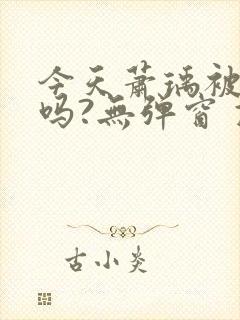 今天萧瑀被
吗?無弹窗
古小炎